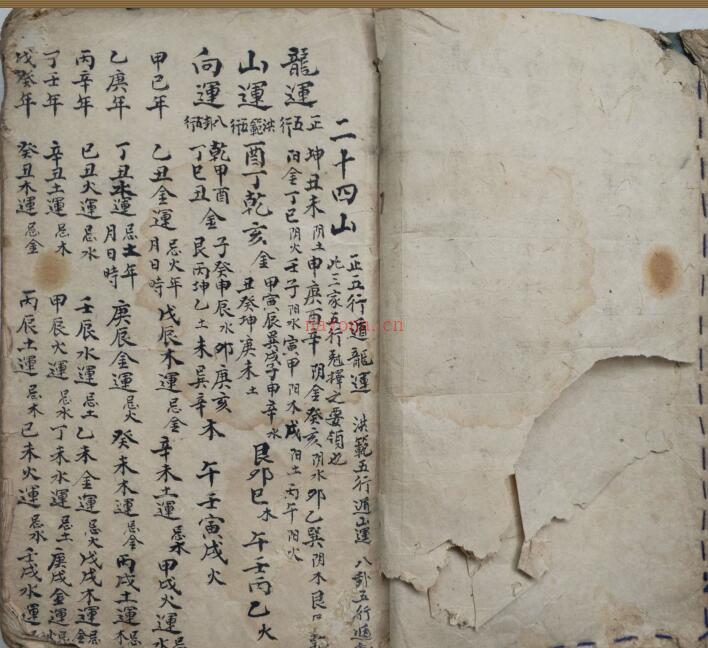 二十四山 正五行遁龍運 洪範五行遁山運 八卦五行遁
此三家五行尅擇之要領也
龍運 正五行 坤丑未陰土申庚酉辛陰金癸亥陰水卯乙巽陰木艮
陽金丁巳陰火壬子陽水寅甲陽木戌陽土丙午陽火
山運 洪範五行 酉丁乾亥金 甲寅辰巽戌子申辛水 艮卯巳木 午壬丙乙火
丑癸坤庚未土
向運 八卦五行 乾甲酉丁巳丑金 子癸申辰水卯庚亥未巽辛木 午壬寅戌火
艮丙坤乙土
甲巳年 乙丑金運忌火年月日時 戊辰木運忌金 辛未土運忌木 甲戌火運忌水
乙庚年 丁丑水運忌土年月日時 庚辰金運忌火 癸未木運忌金 丙戌土運忌木
丙辛年 巳丑火運忌水 壬辰水運忌土 乙未金運忌火 戊戌木運忌金
丁壬年 辛丑土運忌木 甲辰火運忌水 丁未水運忌土 庚戌金運忌
戊癸年 癸丑木運忌金 丙辰土運忌木 巳未火運忌水 壬戌水運
nayona.cn